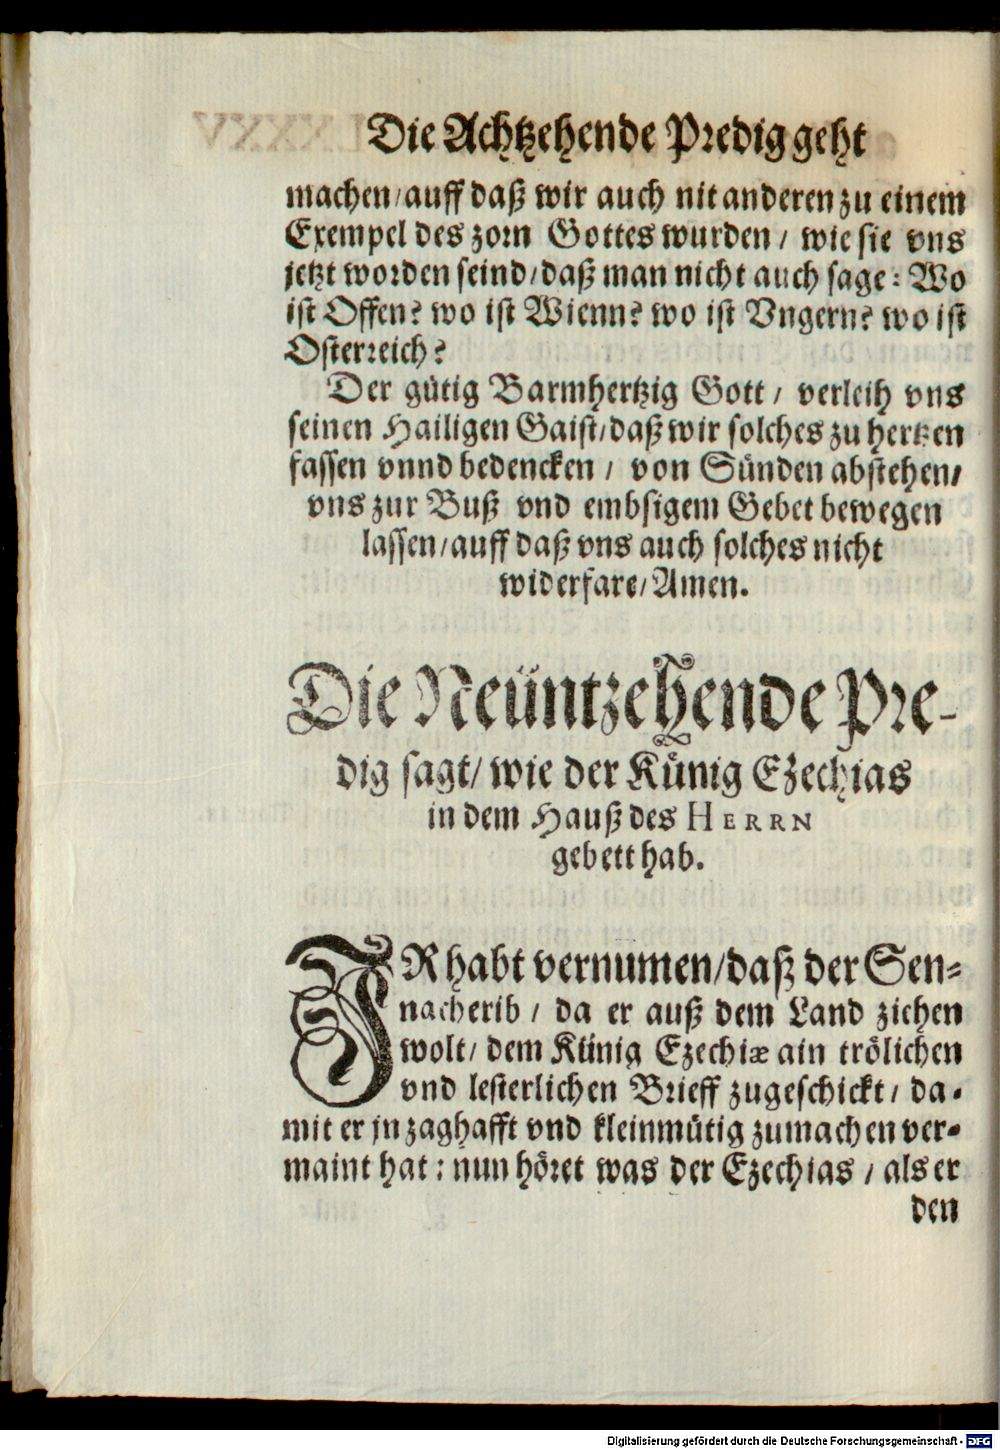 Die Achtzehende Predig geht
machen/auff daß wir auch nit anderen zu einem
Exempel des zorn Gottes wurden / wie sie vns
jetzt worden seind/daß man nicht auch sage: Wo
ist Offen? wo ist Wienn? wo ist Vngern? wo ist
Osterreich?
Der gütig Barmhertzig Gott / verleih vns
seinen Hailigen Gaist/daß wir solches zu hertzen
fassen vnnd bedencken / von Sünden abstehen/
vns zur Buß vnd embsigem Gebet bewegen
lassen/auff daß vns auch solches nicht
widerfare/Amen.
Die Neüntzehende Pre-
dig sagt/ wie der Künig Ezechias
in dem Hauß des HERRN
gebett hab.
IR habt vernumen/daß der Sen-
nacherib / da er auß dem Land ziehen
wolt/ dem Künig Ezechiæ ain trölichen
vnd lesterlichen Brieff zugeschickt / da-
mit er jn zaghafft vnd kleinmütig zumachen ver-
maint hat: nun höret was der Ezechias / als er
den
Digitalisierung gefördert durch die Deutsche Forschungsgemeinschaft - DFG